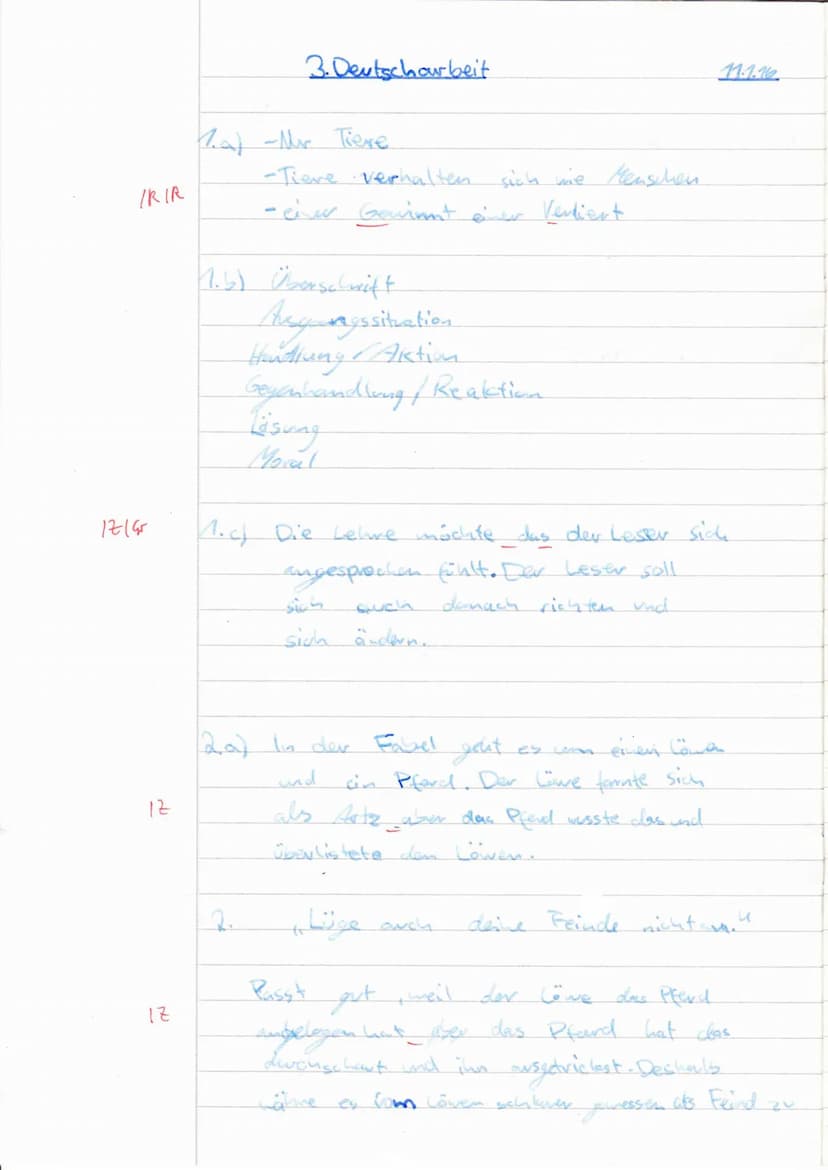 3. Deutscharbeit 11.1.16
1.a) -Nur Tiere
-Tiere verhalten sich wie Menschen
/R/R
-einer Gewinnt einer Verliert
1.b) Überschrift
Ausgangssituation
Handlung/Aktion
Gegenhandlung/Reaktion
Lösung
Moral
/Z/Gr
1.c) Die Lehre möchte das der Leser sich
angesprochen fühlt. Der Leser soll
sich auch danach richten und
sich ändern.
2.a) In der Fabel geht es um einen Löwen
und ein Pferd. Der Löwe tarnte sich
/Z
als Artz aber das Pferd wusste das und
überlistete den Löwen.
2. „Lüge auch deine Feinde nicht an."
Passt gut, weil der Löwe das Pferd
/Z
angelogen hat aber das Pferd hat das
durchschaut und ihn ausgetrickst. Deshalb
währe es vom Löwen schlauer gewessen als Feind zu